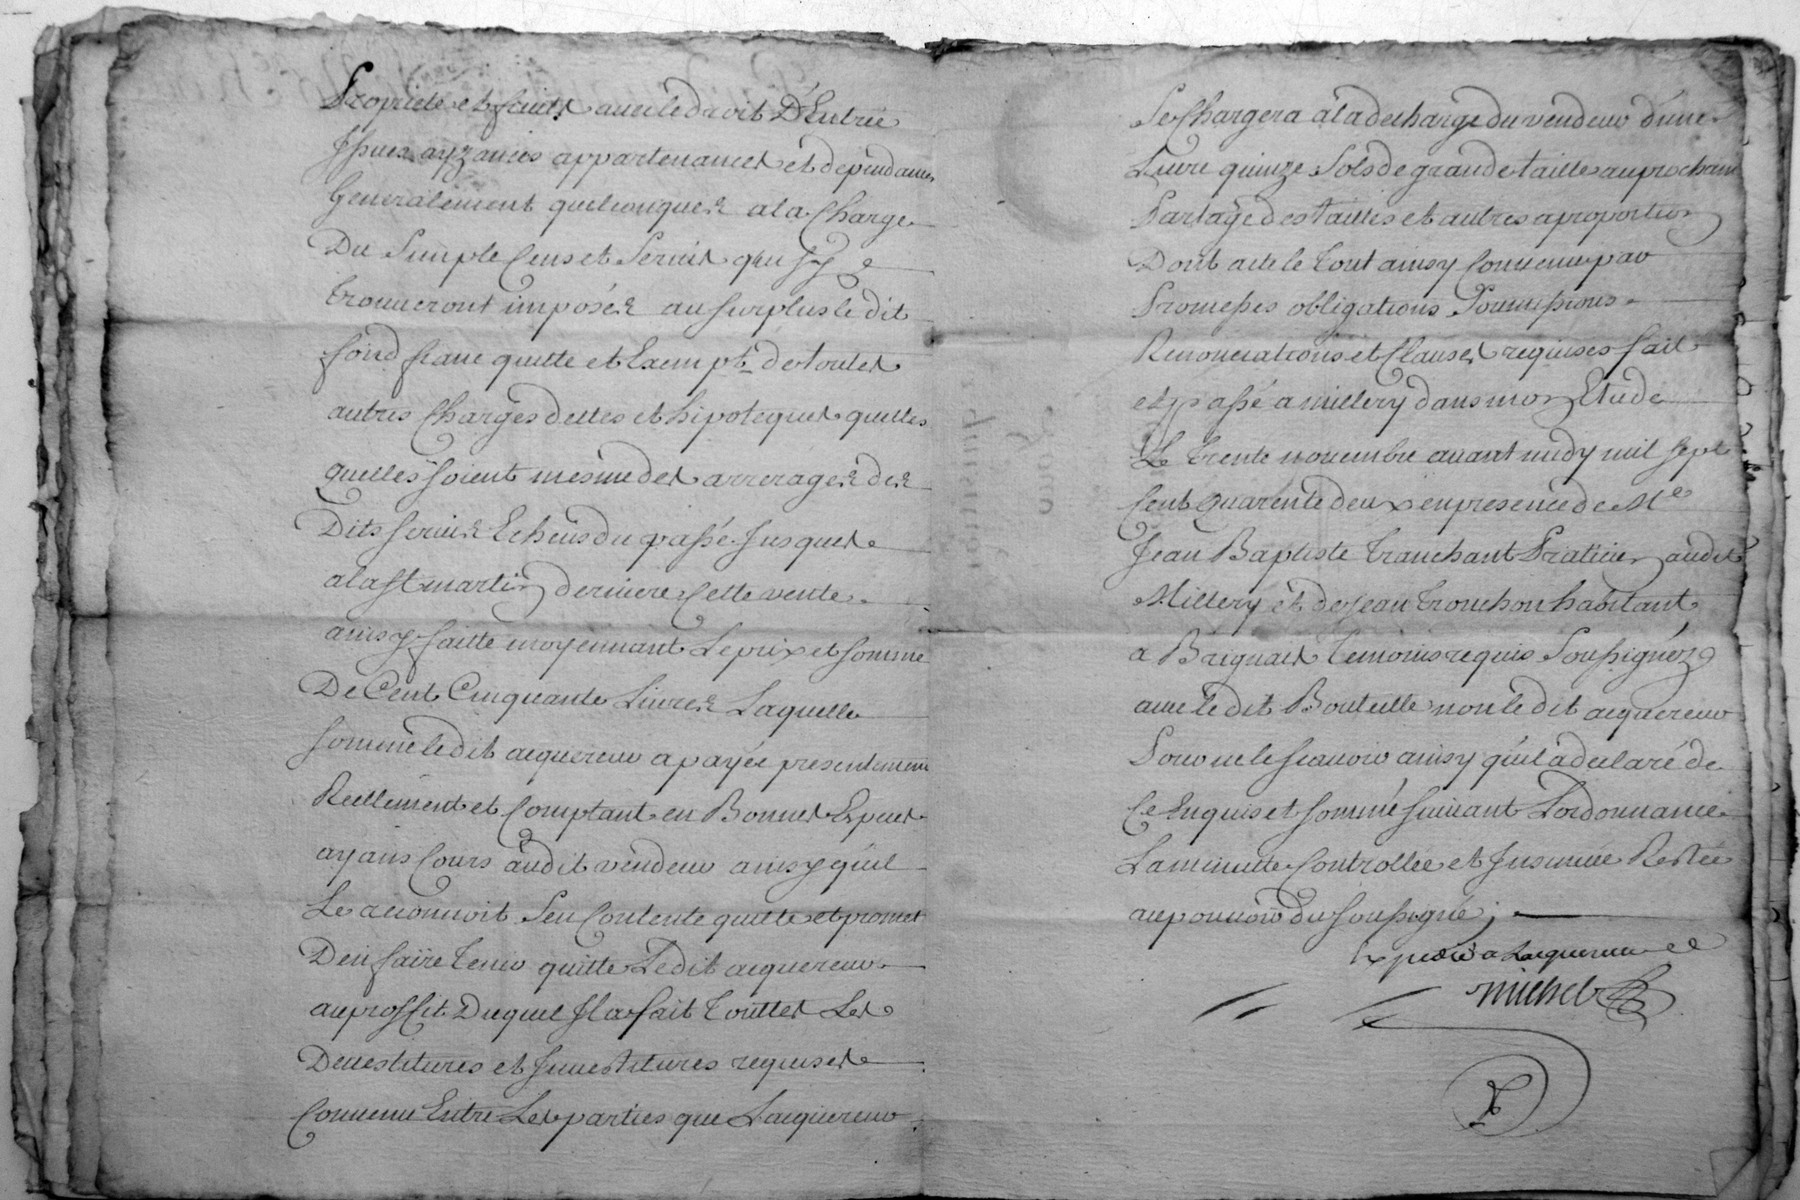 Propriete et fruits avec le droit D'Entrée
Issues ayzances appartenances et dependances
Generalement quelconques a la Charge
Du Simple Cens et Servis qui sy
trouueront imposés au surplus le dit
fond franc quitte et Exempt de toutes
autres Charges dettes et hipoteques quittes
quelles soient mesme des arrerages des
Dits servis Echeus du passé Jusques
a la st martin derniere Cette vente
ainsy faitte moyennant Le prix et somme
De Cent Cinquante Livres Laquelle
somme le dit acquereur a payée presentement
Reellement et Comptant en Bonnes Especes
ayans Cours audit vendeur ainsy qu'il
Le reconnoit Sen Contente quitte et promet
Den faire tenir quitte Ledit acquereur
au proffit Duquel Il a fait touttes Les
Devestitures et Investitures requises
Convenu Entre Les parties que Lacquereur
Se Chargera a la decharge du vendeur d'une
Livre quinze Sols de grande taille au prochain
Partage des tailles et autres a proportion
Dont acte le tout ainsy Convenu par
Promesses obligations Soumissions
Renonciations et Clauses requises fait
et passé a millery dans mon Etude
Le trente novembre avant midy mil sept
Cent quarente deux en presence de Me
Jean Baptiste tranchant Praticien audit
Millery et de Jean trouchon habitant
a Brignais temoins requis Soussignéz
avec le dit Bouteille non le dit acquereur
Pour ne le scauoir ainsy qu'il a declaré de
Ce Enquis et sommé suivant Lordonnance
La minutte Controllée et Insinuée Restée
au pouuoir du soussigné ;
Expedié a Lacquereur
michel